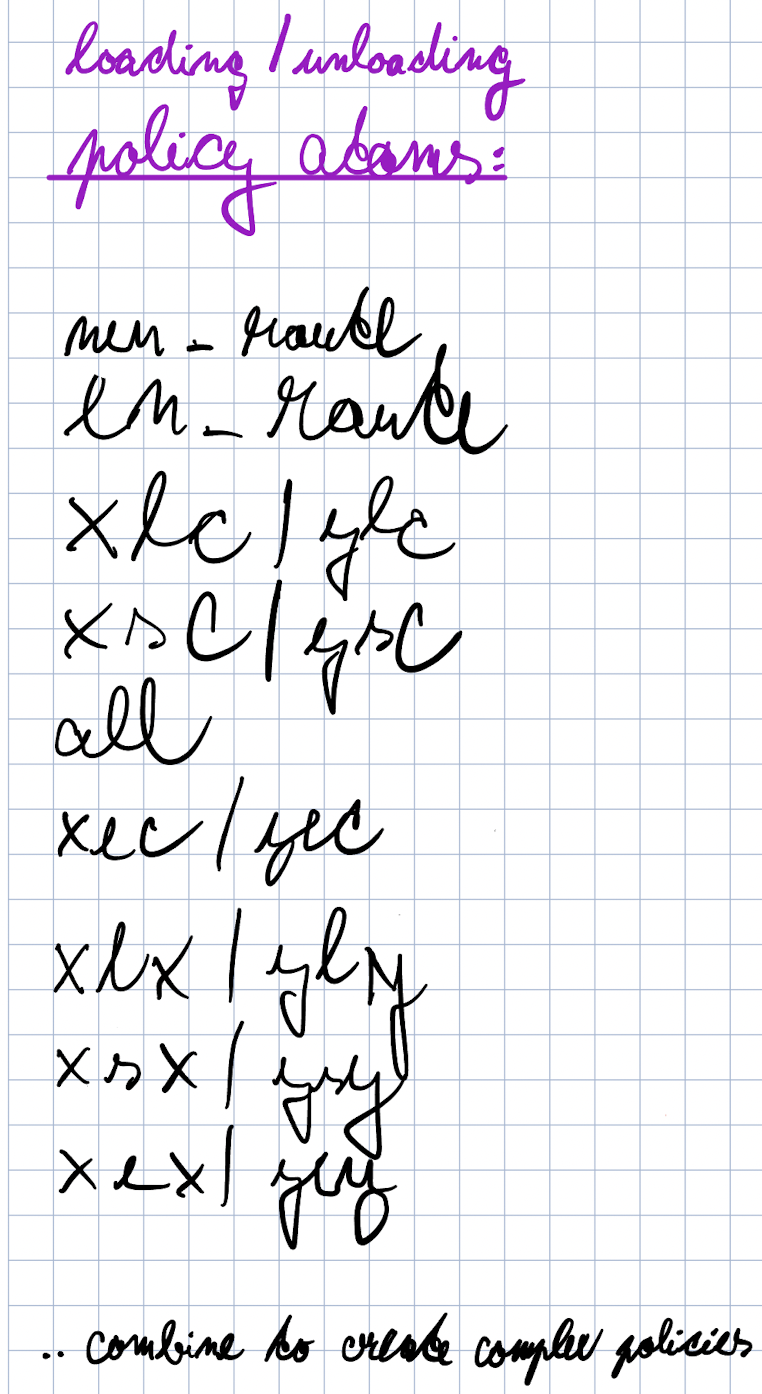 loading / unloading
policy atoms:
new_route
en_route
xlc / ylc
xsc / ysc
all
xec / yec
xlx / yly
xsx / ysy
xex / yey
.. combine to create complex policies